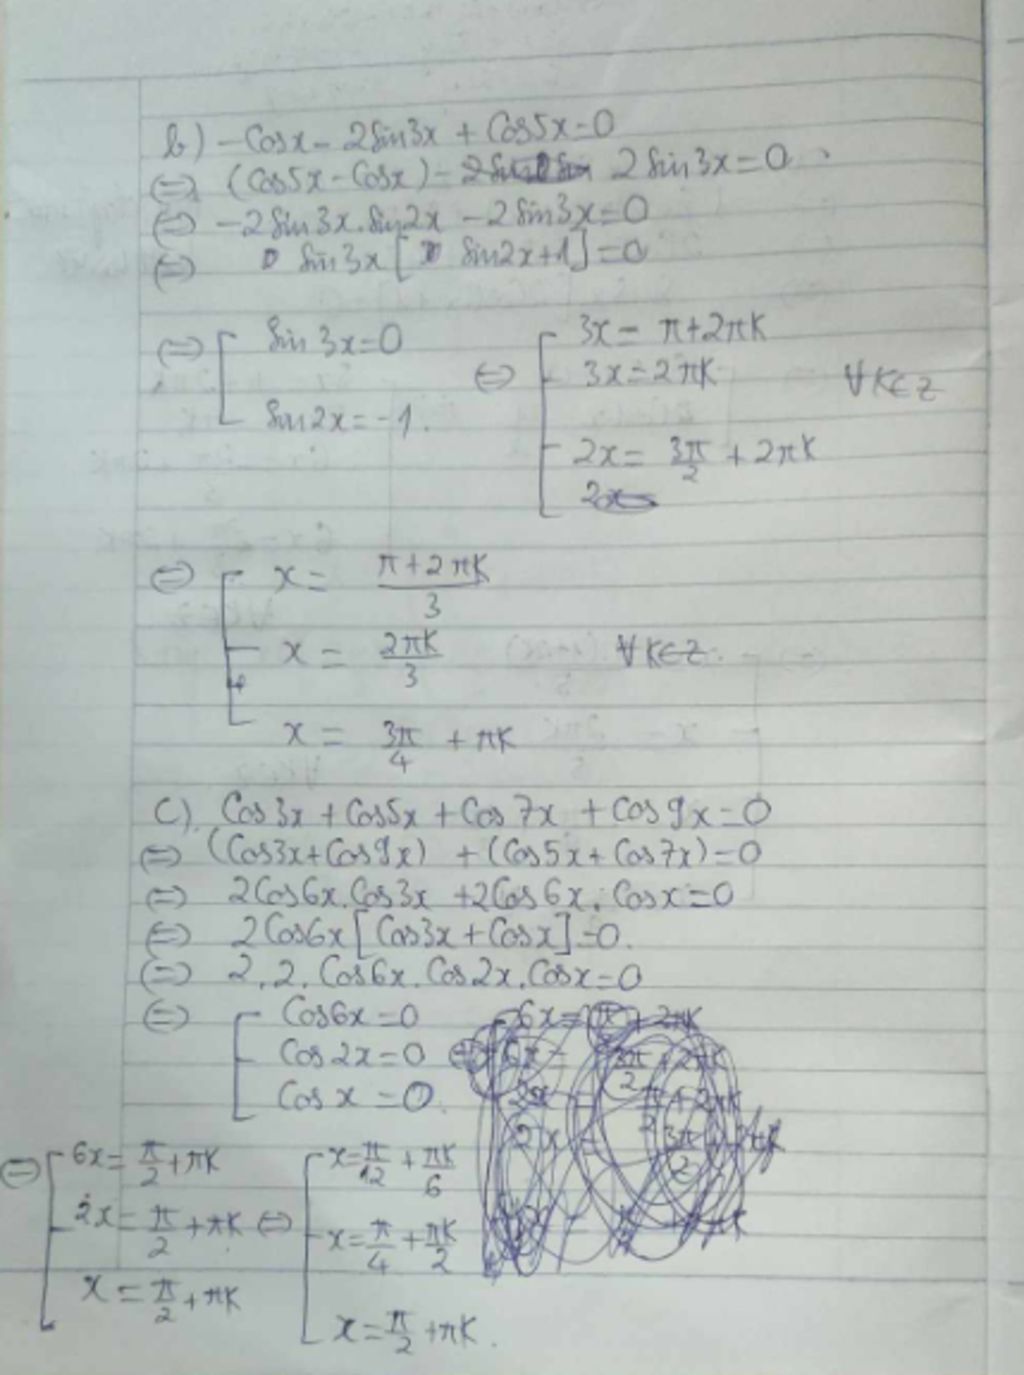 b) -Cosx - 2Sin3x + Cos5x=0
⇔ (Cos5x-Cosx) - 2Sin3x=0
⇔ -2Sin3x.Sin2x -2Sin3x=0
⇔ Sin3x[Sin2x+1]=0
⇔ [ Sin3x=0 ⇔ [ 3x= π+2πK
3x=2πK ∀K∈Z
Sin2x=-1.
2x= 3π/2 + 2πK
⇔ [ x= (π+2πK)/3
x= 2πK/3 ∀K∈Z.
x= 3π/4 + πK
C). Cos3x+Cos5x+Cos7x+Cos9x=0
⇔ (Cos3x+Cos9x) + (Cos5x+Cos7x)=0
⇔ 2Cos6x.Cos3x +2Cos6x.Cosx=0
⇔ 2Cos6x[Cos3x+Cosx]=0.
⇔ 2.2.Cos6x.Cos2x.Cosx=0
⇔ [ Cos6x=0
Cos2x=0
Cosx=0.
⇔ [ 6x= π/2+πK [ x=π/12 + πK/6
2x= π/2+πK ⇔ x=π/4+πK/2
x= π/2+πK x=π/2+πK.